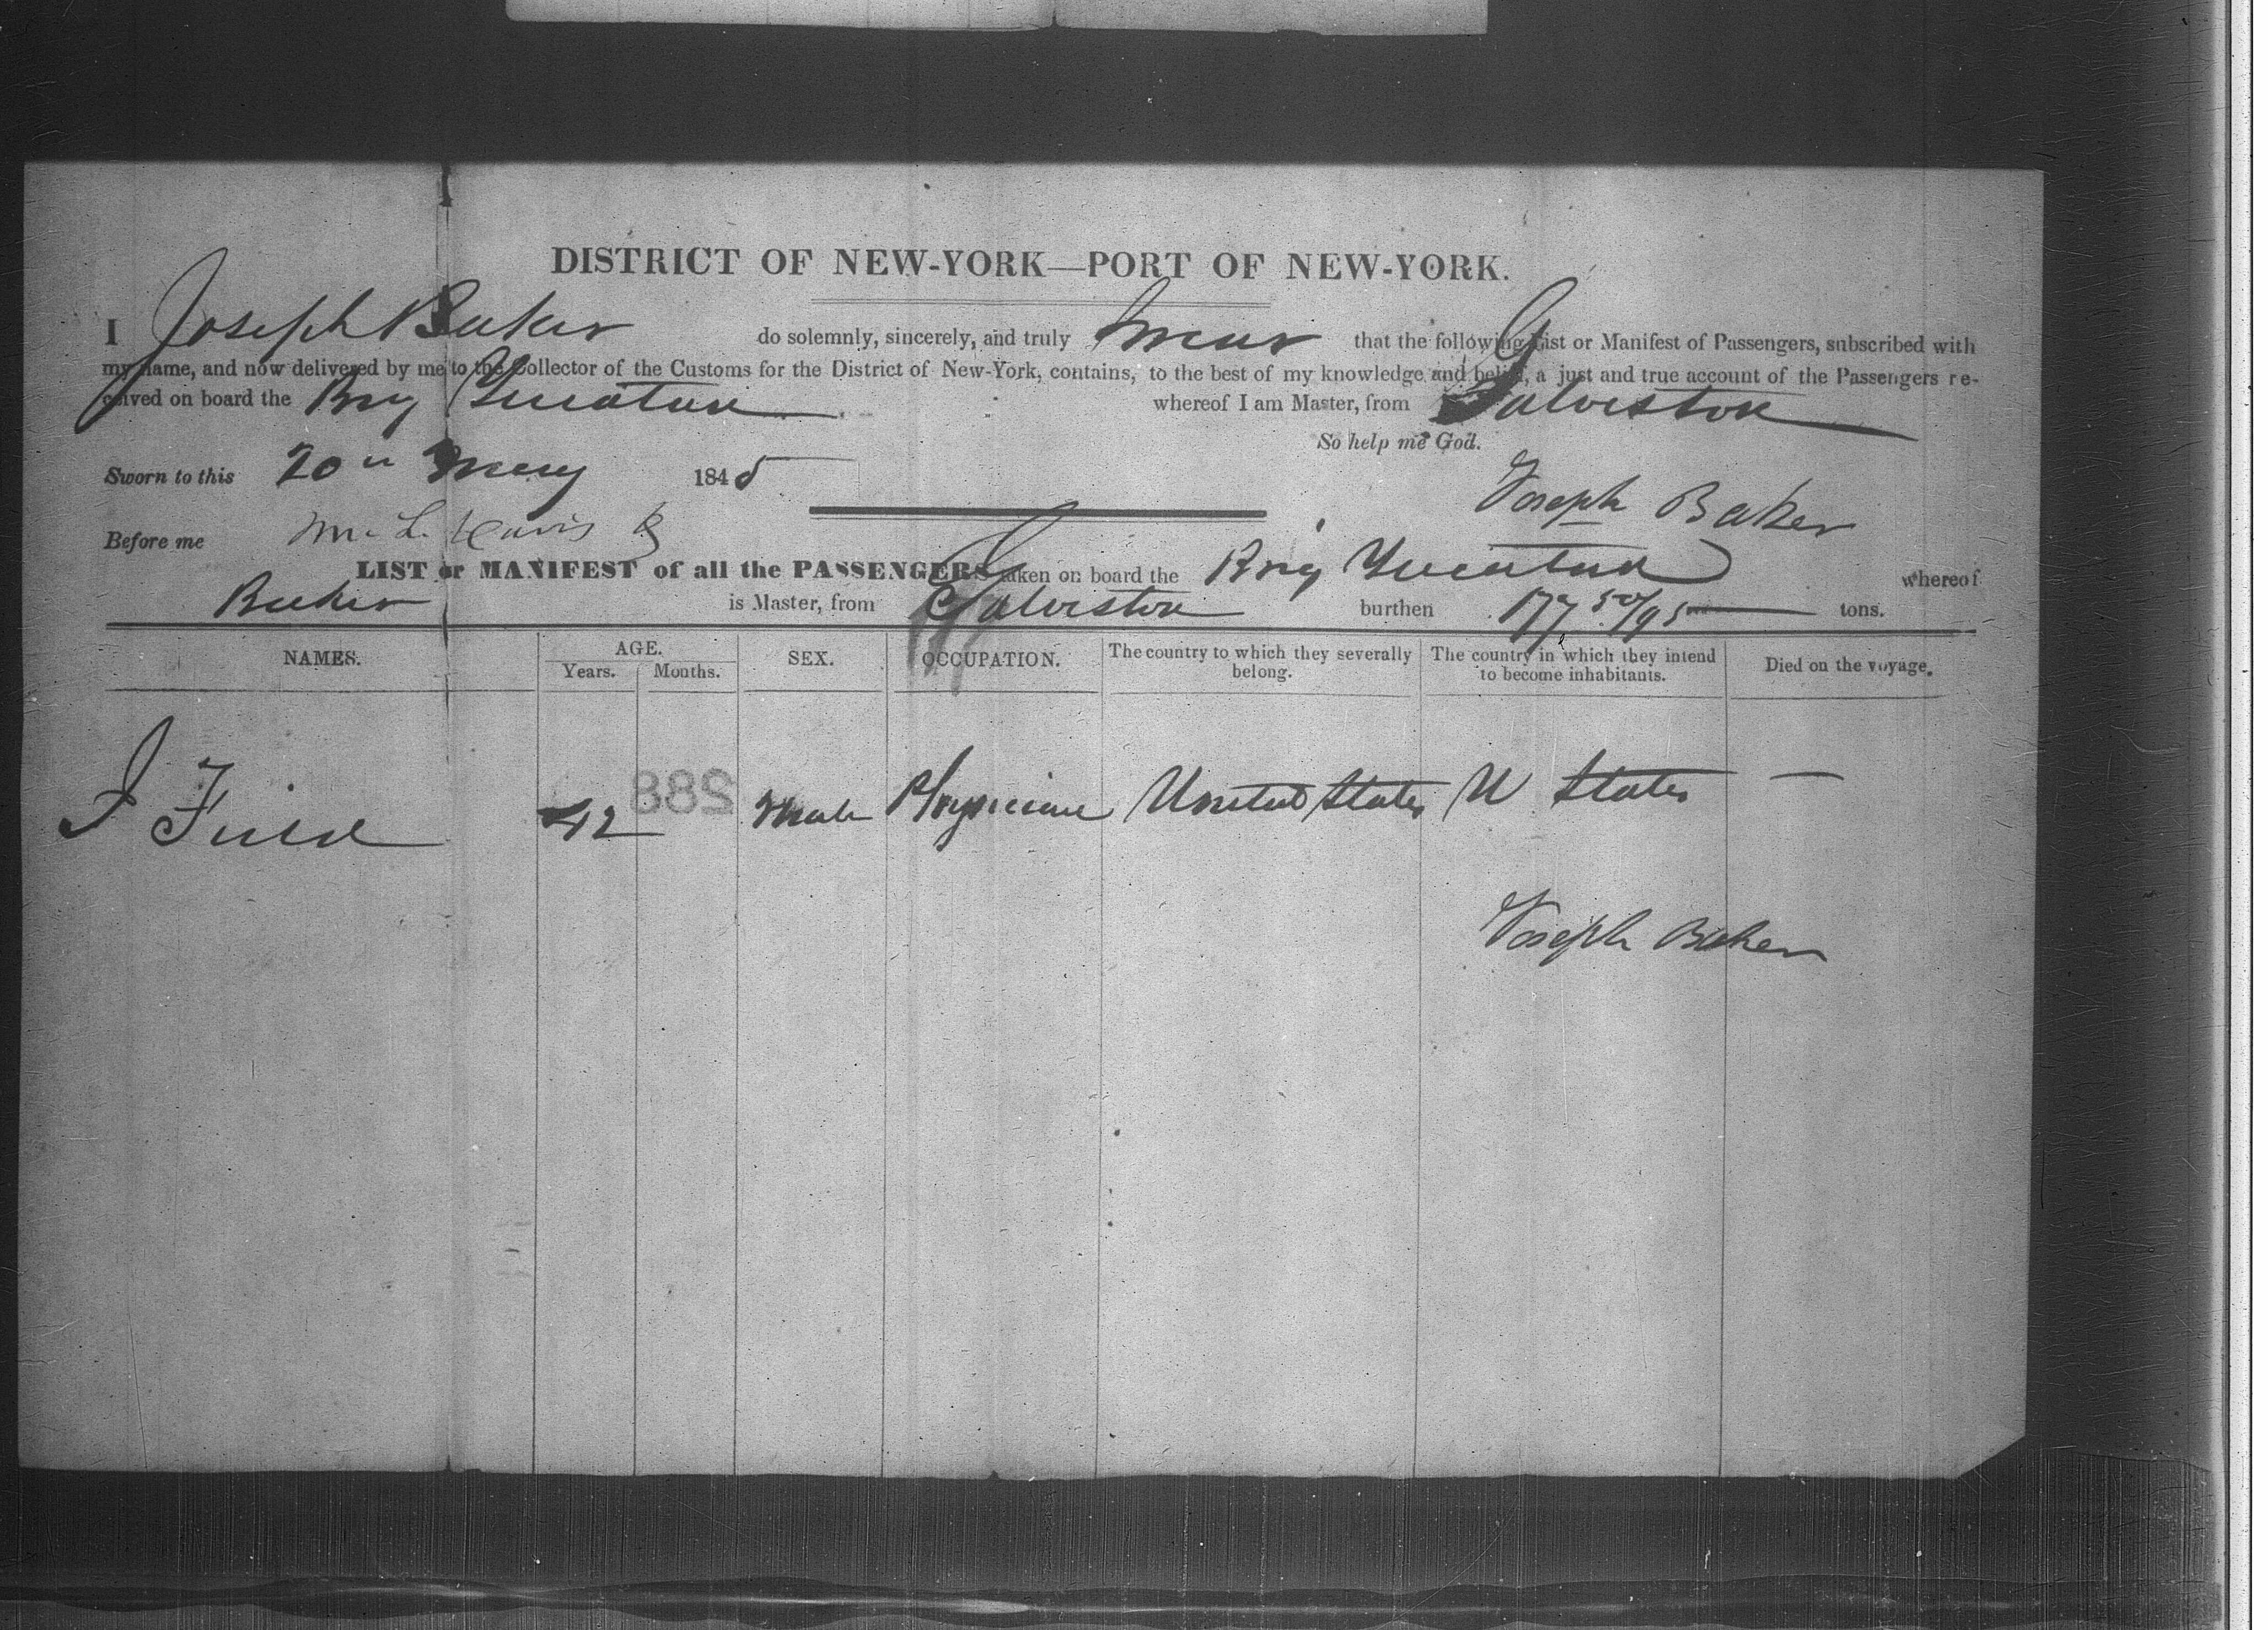 DISTRICT OF NEW-YORK—PORT OF NEW-YORK.
I Joseph Baker do solemnly, sincerely, and truly swear that the following List or Manifest of Passengers, subscribed with
my name, and now delivered by me to the Collector of the Customs for the District of New-York, contains, to the best of my knowledge and belief, a just and true account of the Passengers re-
ceived on board the Brig Yucatan whereof I am Master, from Galveston
So help me God.
Sworn to this 20th May 1845
Joseph Baker
Before me
LIST or MANIFEST of all the PASSENGERS taken on board the Brig Yucatan whereof
Baker is Master, from Galveston burthen 177 50/95 tons.
NAMES. AGE. Years. Months. SEX. OCCUPATION. The country to which they severally belong. The country in which they intend to become inhabitants. Died on the voyage.
J Field 42 Male Physician United States U States —
288
Joseph Baker